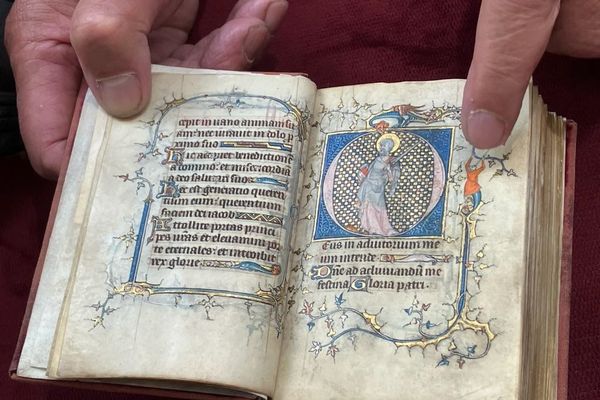 cepit in vano animam su
am nec iuravit in dolo p
ximo suo
Hic accipiet benediction
a domino et misericordia
a deo salutari suo
Hec est generatio queren
tium eum querentium
faciem dei iacob
Attollite portas princi
pes vestras et elevamini por
te eternales et introibit
rex glorie
Deus in adiutorium me
um intende
Domine ad adiuvandum me
festina Gloria patri.